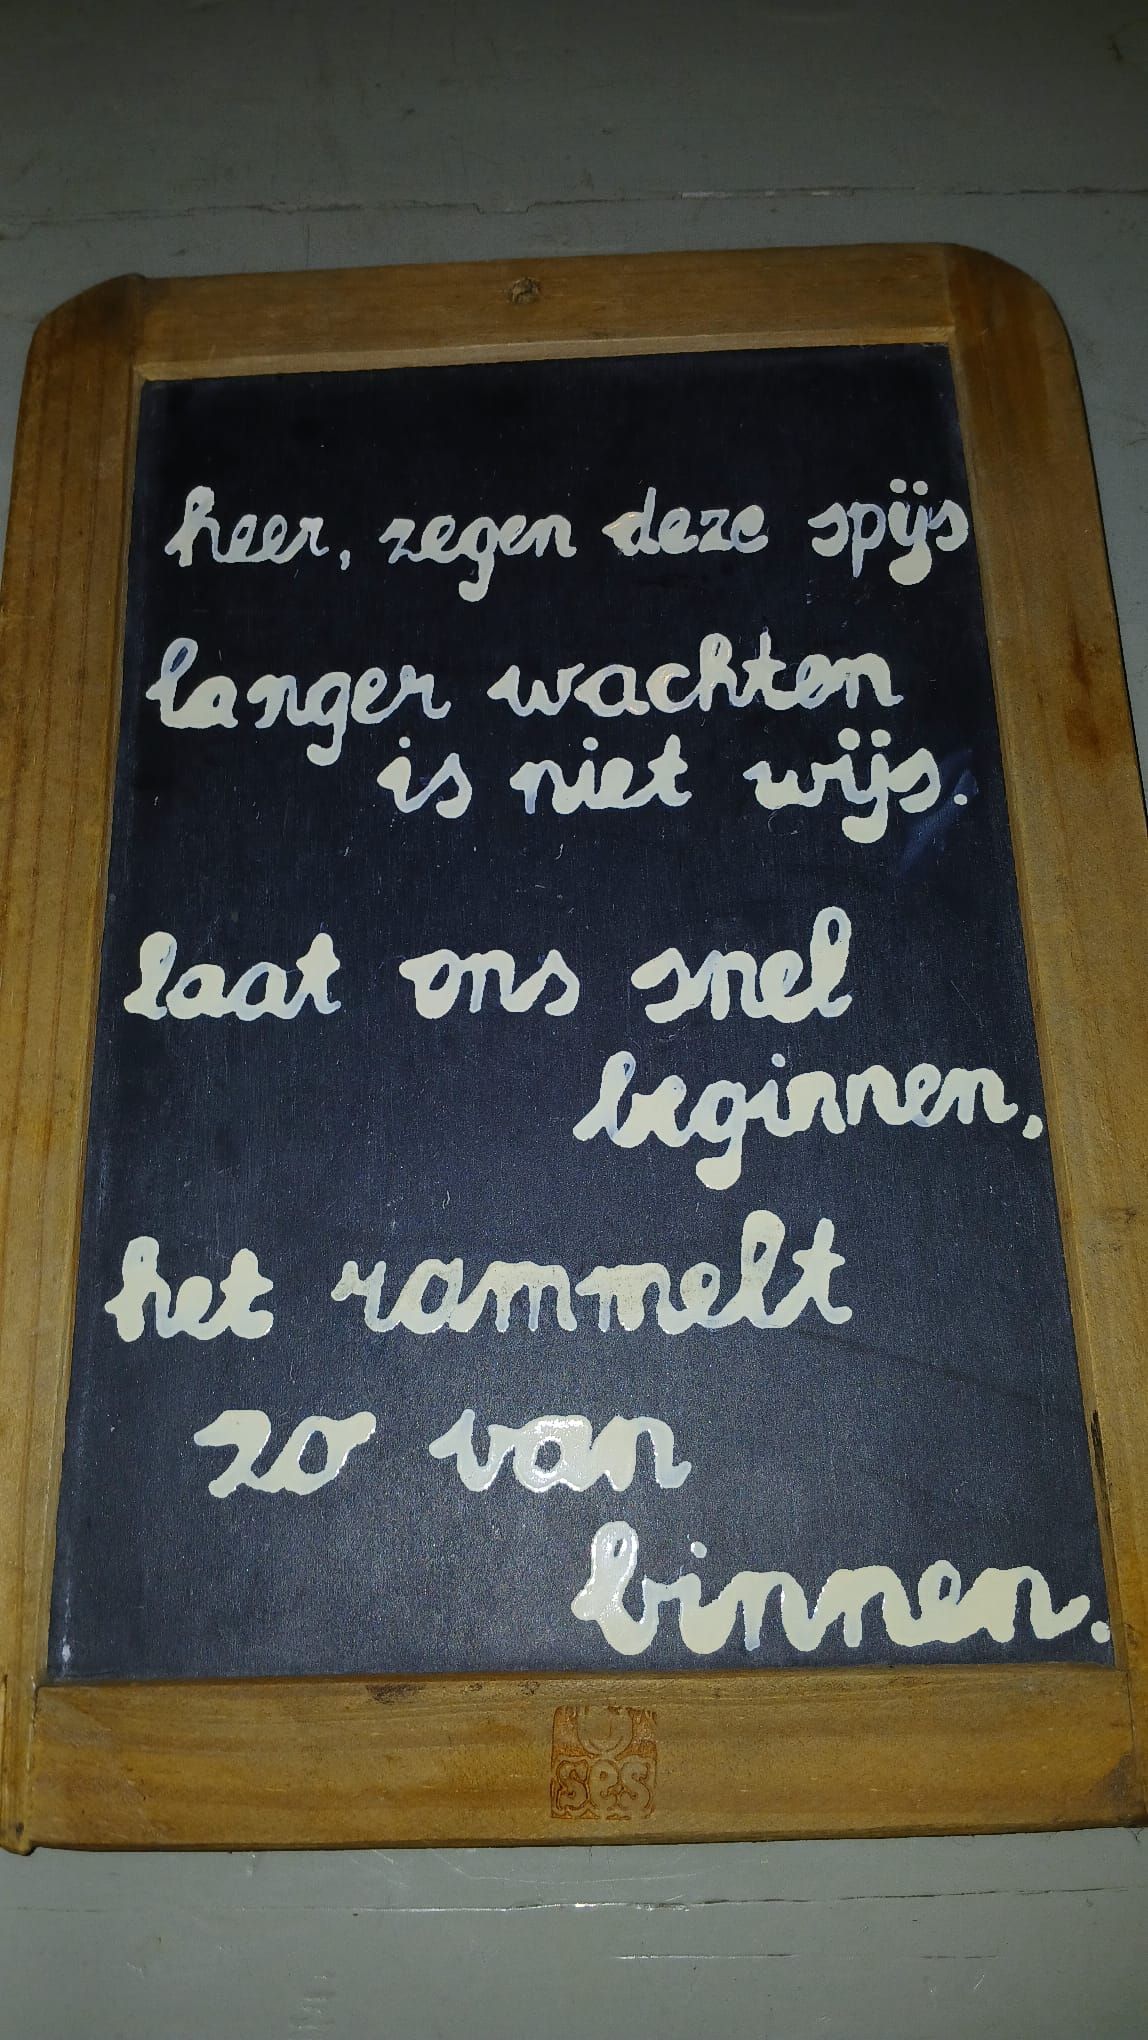 heer, zegen deze spijs
langer wachten
is niet wijs.
laat ons snel
beginnen,
het rammelt
zo van
binnen.
SPS